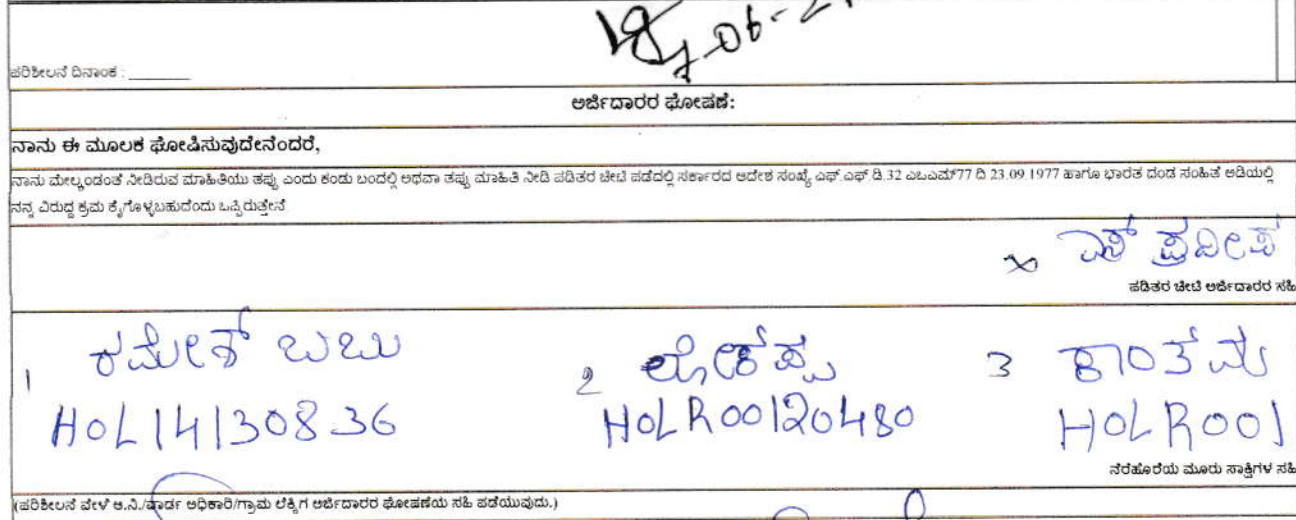 ಪರಿಶೀಲನೆ ದಿನಾಂಕ : ________
ಅರ್ಜಿದಾರರ ಘೋಷಣೆ:
ನಾನು ಈ ಮೂಲಕ ಘೋಷಿಸುವುದೇನೆಂದರೆ,
ನಾನು ಮೇಲ್ಕಂಡಂತೆ ನೀಡಿರುವ ಮಾಹಿತಿಯು ತಪ್ಪು ಎಂದು ಕಂಡು ಬಂದಲ್ಲಿ ಅಥವಾ ತಪ್ಪು ಮಾಹಿತಿ ನೀಡಿ ಪಡಿತರ ಚೀಟಿ ಪಡೆದಲ್ಲಿ ಸರ್ಕಾರದ ಆದೇಶ ಸಂಖ್ಯೆ ಎಫ್.ಎಫ್ ಡಿ.32 ಎಒಎಮ್77 ದಿ 23.09.1977 ಹಾಗೂ ಭಾರತ ದಂಡ ಸಂಹಿತೆ ಅಡಿಯಲ್ಲಿ
ನನ್ನ ವಿರುದ್ಧ ಕ್ರಮ ಕೈಗೊಳ್ಳಬಹುದೆಂದು ಒಪ್ಪಿರುತ್ತೇನೆ
ಎಸ್ ಪ್ರದೀಪ
ಪಡಿತರ ಚೀಟಿ ಅರ್ಜಿದಾರರ ಸಹಿ
1 ರಮೇಶ್ ಬಬು 2 ಲೋಕಪ್ಪ 3 ಶಾಂತಮ್ಮ
HOL14130836 HOLR00120480 HOLR001
ನೆರೆಹೊರೆಯ ಮೂರು ಸಾಕ್ಷಿಗಳ ಸಹಿ
(ಪರಿಶೀಲನೆ ವೇಳೆ ಆ.ನಿ./ವಾರ್ಡ್ ಅಧಿಕಾರಿ/ಗ್ರಾಮ ಲೆಕ್ಕಿಗ ಅರ್ಜಿದಾರರ ಘೋಷಣೆಯ ಸಹಿ ಪಡೆಯುವುದು.)